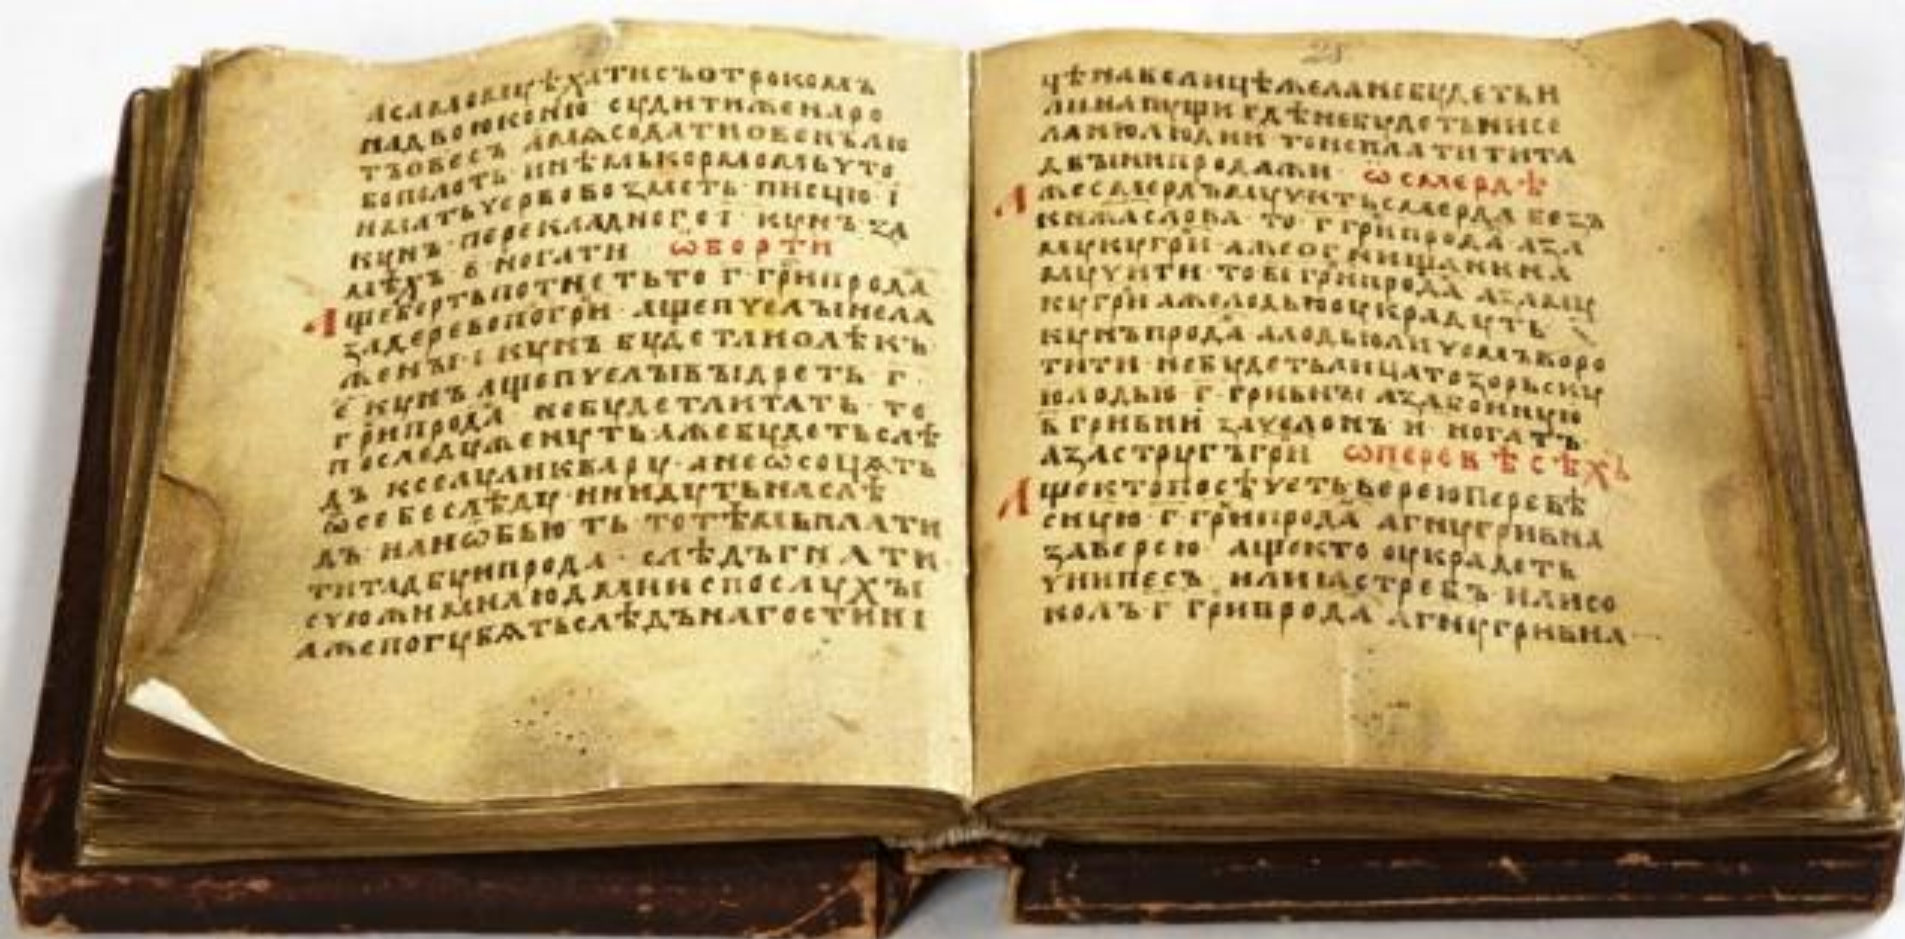 а самомѹ ѣхати съ отрокомъ
на двою коню сѹдити же на ро
тъ овесъ а мѧсо дати овенъ лю
бо полоть инѣмь кормомь что
имать черево возметь писцю і
кѹнъ перекладного е҃ кѹнъ за
мѣхъ в҃ ногатѣ ѡ борти
аще борть потнеть то г҃ гр҃и прода
за дерево по гр҃и аще пчелы не ла
жены і҃ кѹнъ бѹдет ли олѣкъ
е҃ кѹнъ аще пчелы выдреть г҃
гр҃и прода не бѹдет ли тать то
по слѣдѹ женѹть аже бѹдеть слѣ
дъ к селѹ или к варѹ а не ѡсочѧть
ѡ себе слѣдѹ ни идѹть на слѣ
дъ или ѿбьють то тѣмь плати
ти татбѹ и прода слѣдъ гнати
с чюжими людми и с послѹхы
аже погѹбѧть слѣдъ на гостинѣ
25
чѣ на велицѣ же ла не бѹдеть и
ли на пѹщи гдѣ не бѹдеть ни се
ла ни людии то не платити та
двы ни продажи ѡ смердѣ
аже смердъ мѹчить смерда безъ
кнѧжа слова то г҃ гр҃и прода а за
мѹкѹ гр҃и аже огнищанина
мѹчити то в҃і гр҃и прода а за мѹ
кѹ гр҃и аже лодью ѹкрадѹть
кѹнъ прода а лодью лицомъ воро
тити не бѹдеть лица то за морьскѹ
ю лодью г҃ гривны а за воиную
в҃ гривнѣ за челонъ и҃ ногатъ
а за стрѹгъ гр҃и ѡ перевѣсѣхъ
аще кто посѣчеть верею перевѣ
снѹю г҃ гр҃и прода а г҃нѹ гривна
за верею аще кто ѹкрадеть
чии песъ или ꙗстребъ или со
колъ г҃ гр҃и прода а г҃нѹ гривна